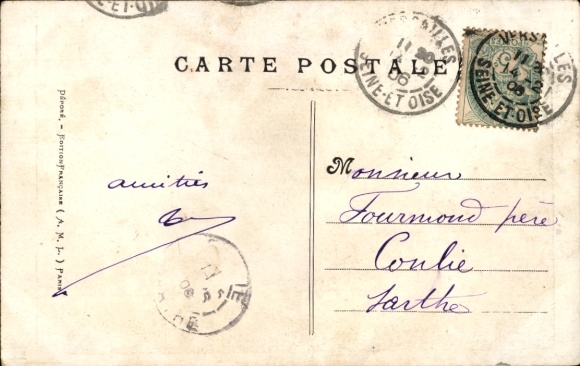 VERSAILLES
SEINE-ET-OISE
CARTE POSTALE
VERSAILLES
SEINE-ET-OISE
DÉPOSÉ. — EDITION FRANÇAISE ( A. M. L. ) PARIS
amitiés
Monsieur
Fourmond père
Conlie
Sarthe